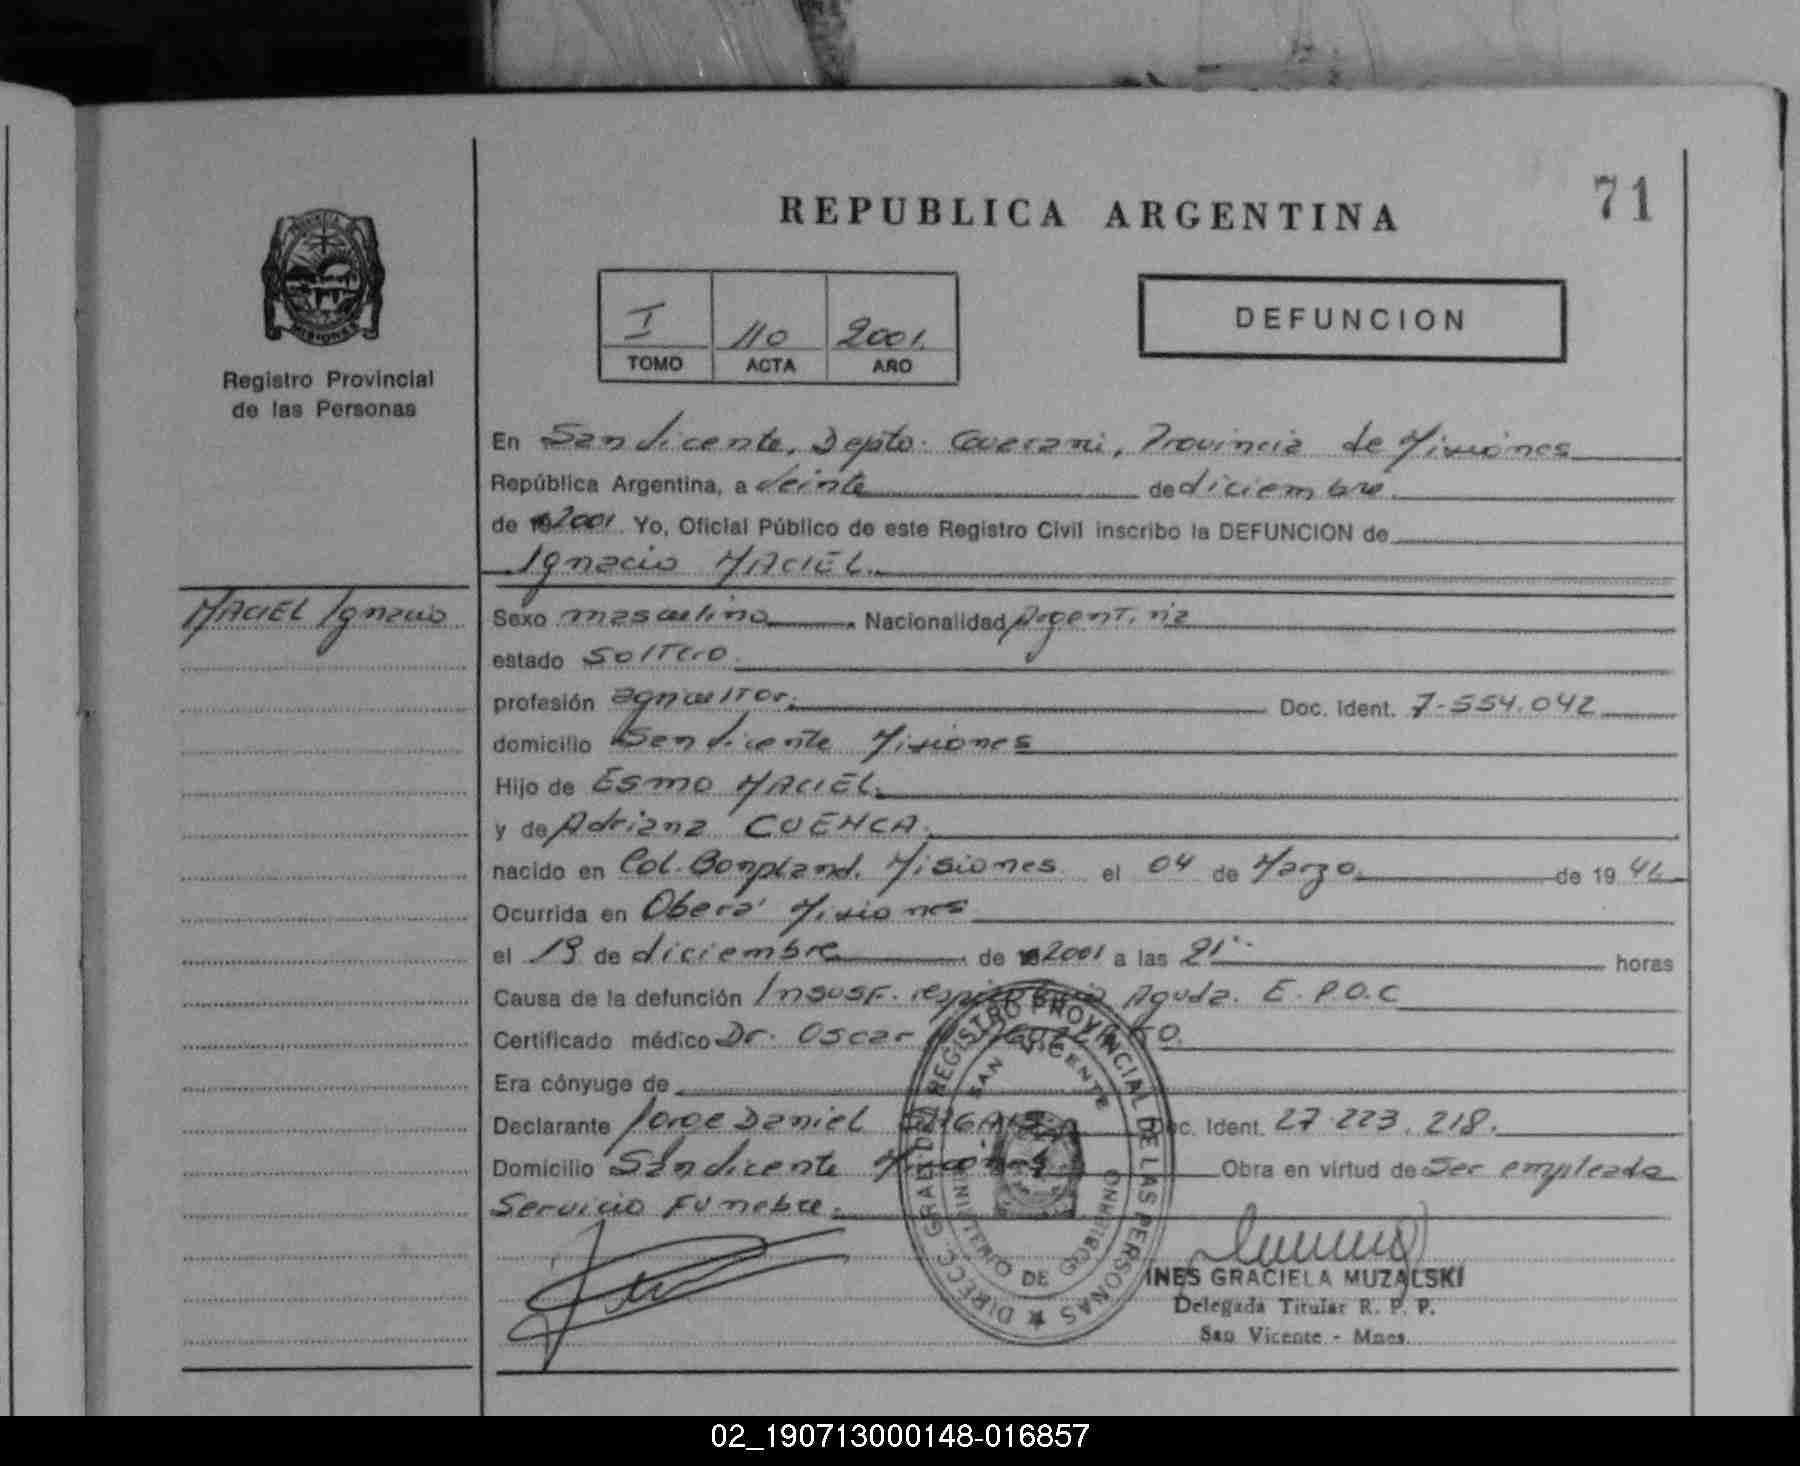 REPUBLICA ARGENTINA
71
I
110
2001.
TOMO
ACTA
AÑO
DEFUNCION
MISIONES
Registro Provincial
de las Personas
En San Vicente, Depto. Guarani, Provincia de Misiones
República Argentina, a veinte de diciembre
de 2001 Yo, Oficial Público de este Registro Civil inscribo la DEFUNCION de
Ignacio MACIEL.
MACIEL Ignacio
Sexo masculino Nacionalidad Argentina
estado soltero
profesión agricultor. Doc. Ident. 7-554.042
domicilio San Vicente Misiones
Hijo de Esmo MACIEL.
y de Adriana CUENCA.
nacido en Col. Bonpland. Misiones el 04 de Marzo de 19
Ocurrida en Oberá Misiones
el 19 de diciembre de 2001 a las 21 horas
Causa de la defunción Insuf. respiratoria Aguda. E.P.O.C
Certificado médico Dr. Oscar
Era cónyuge de
Declarante Jorge Daniel Doc. Ident. 27.223.218.
Domicilio San Vicente Misiones Obra en virtud de Ser empleada
Servicio Funebre.
DIRECC. GRAL. DEL REGISTRO PROVINCIAL DE LAS PERSONAS
SAN VICENTE
MINISTERIO DE GOBIERNO
INES GRACIELA MUZALSKI
Delegada Titular R. P. P.
San Vicente - Mnes.
02_190713000148-016857